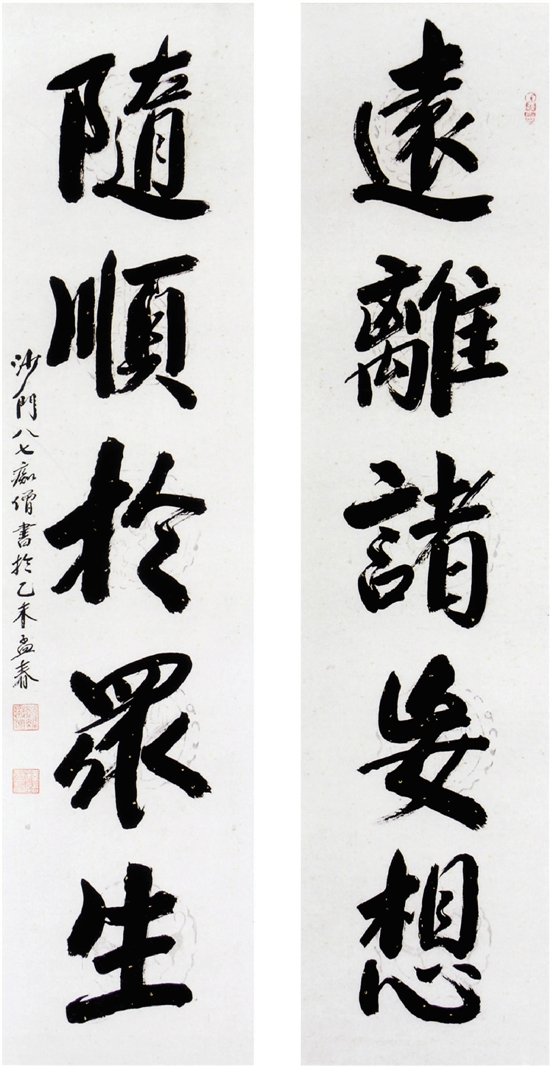 遠離諸妄想
隨順於眾生
沙門八七痴僧書於乙未孟春